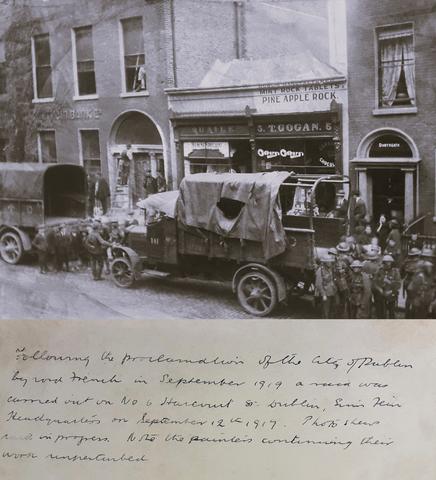 MINT ROCK TABLETS
PINE APPLE ROCK
QUAILE 5. T. GOGAN. 6
Following the proclamation of the City of Dublin
by Lord French in September 1919 a raid was
carried out on No 6 Harcourt St Dublin, Sinn Fein
Headquarters on September 12th 1919. Photo shews
raid in progress. Note the painters continuing their
work unperturbed